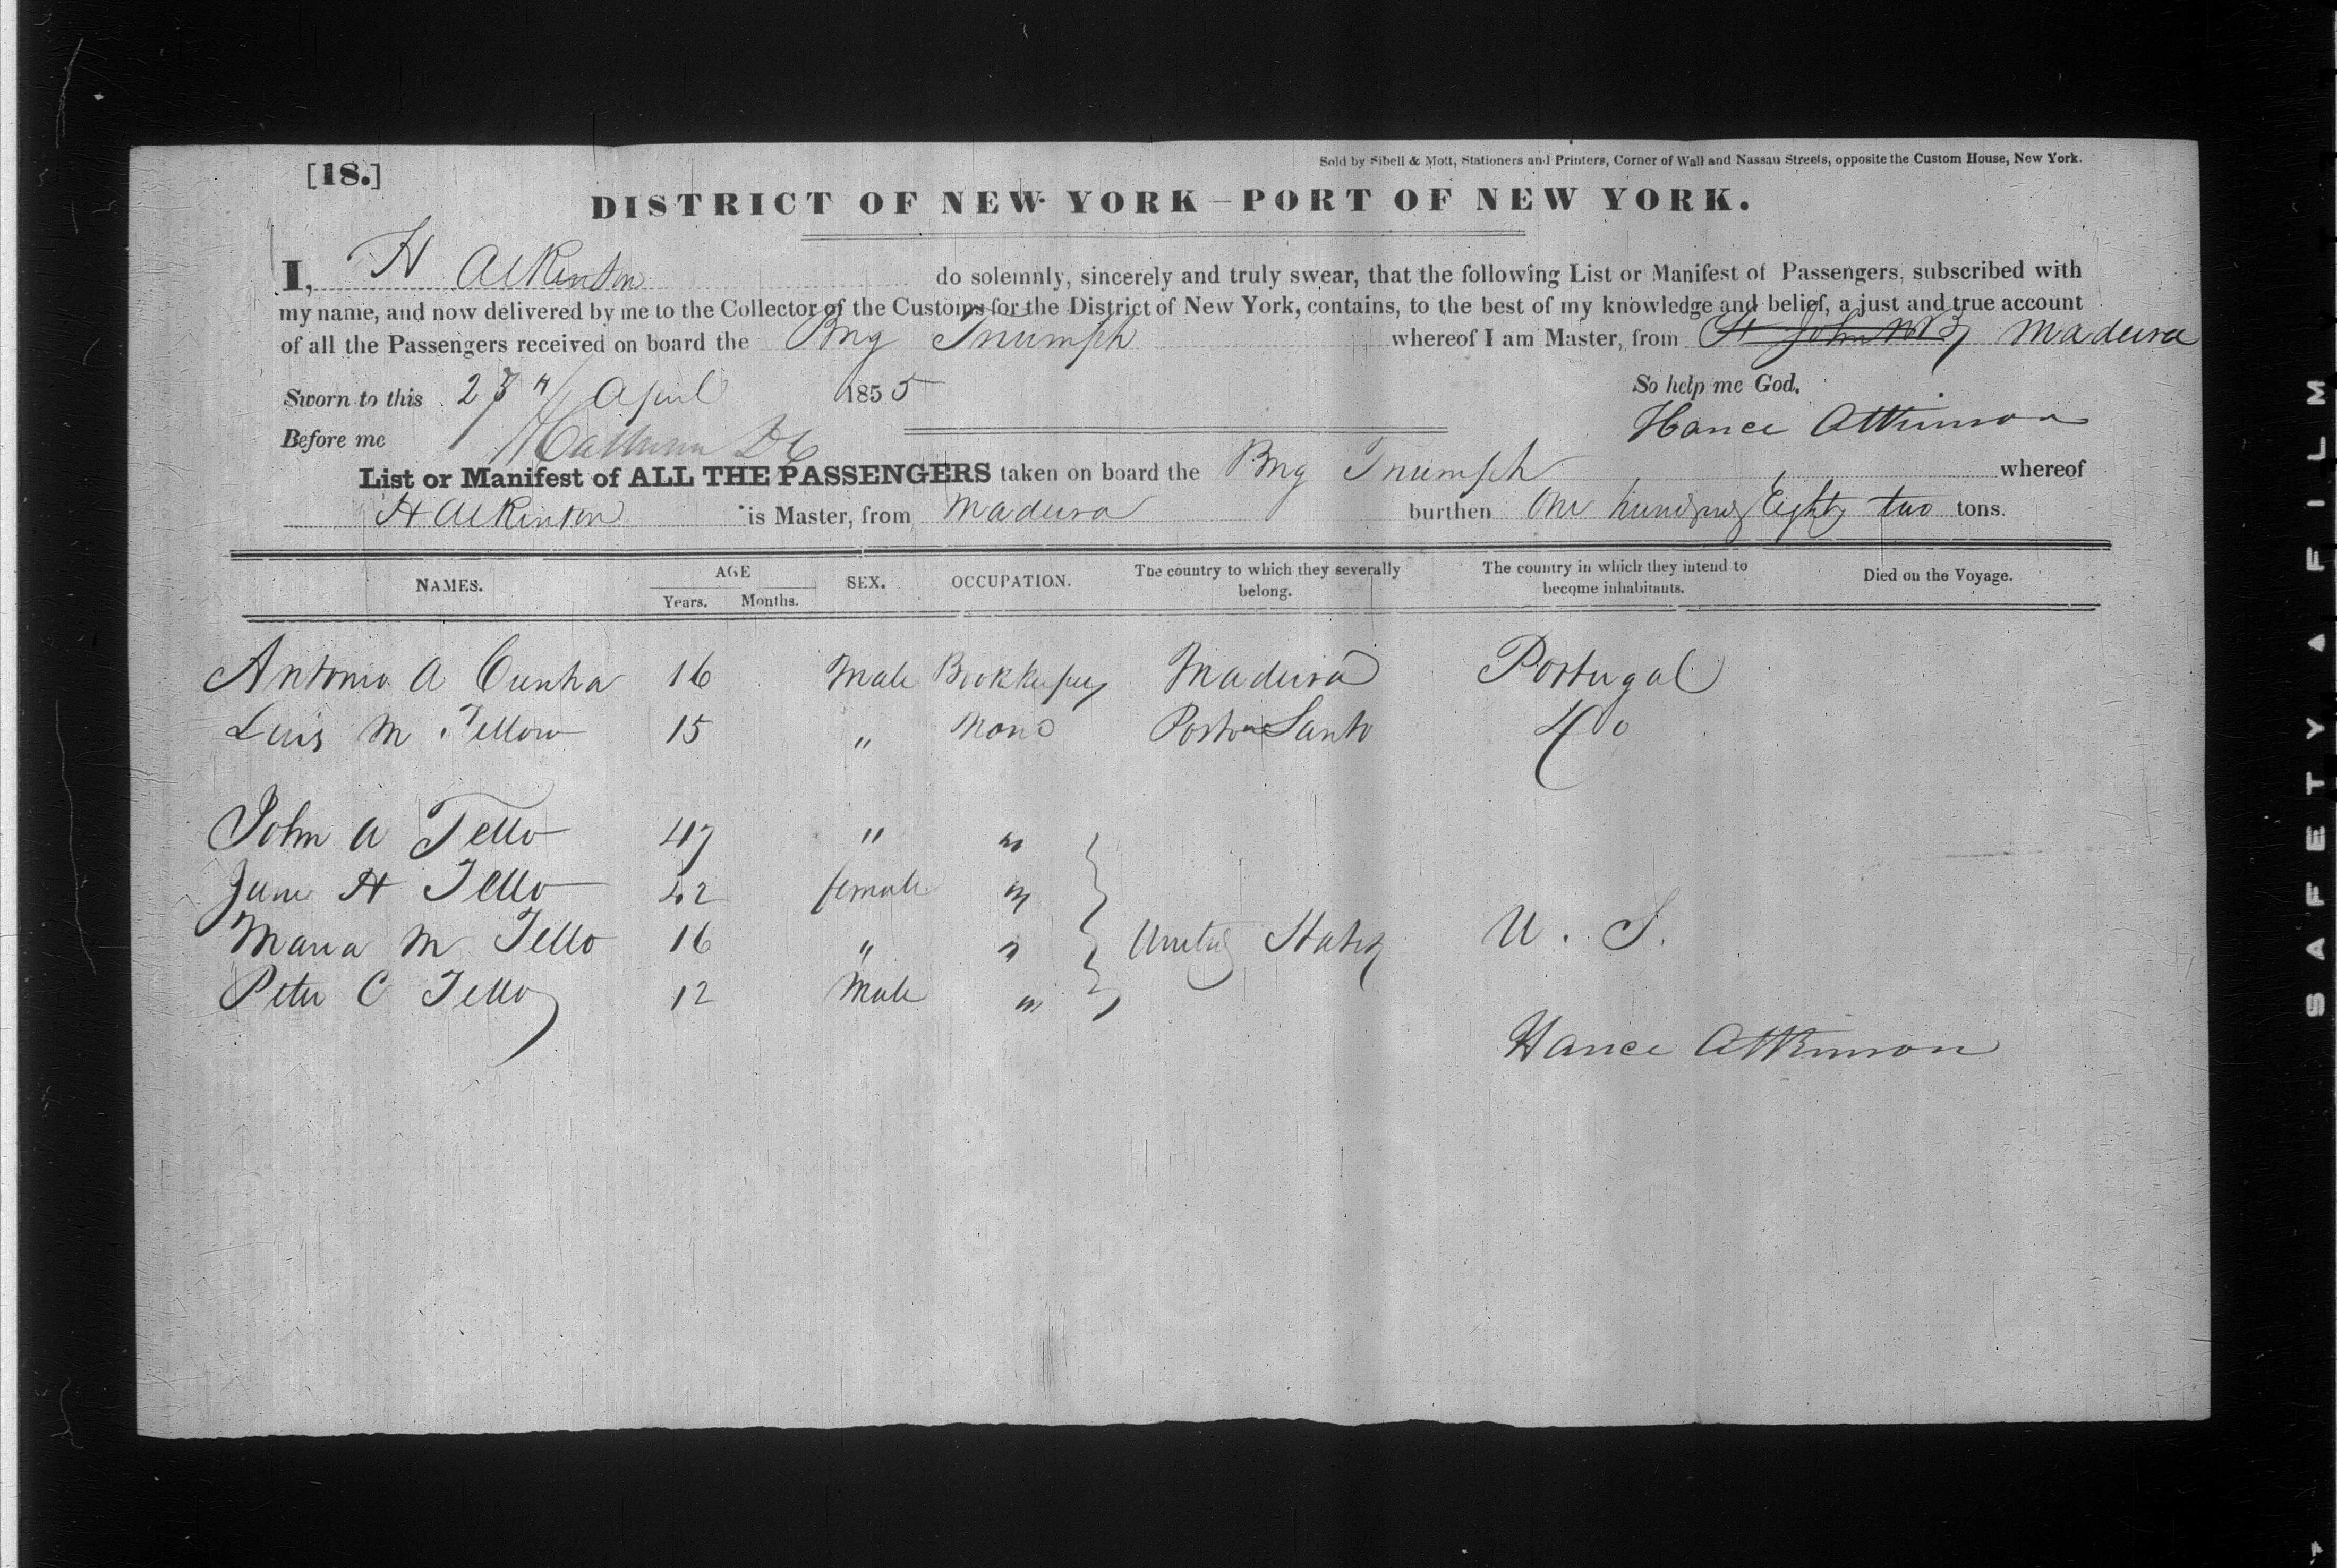 [18.]
Sold by Sibell & Mott, Stationers and Printers, Corner of Wall and Nassau Streets, opposite the Custom House, New York.
DISTRICT OF NEW YORK – PORT OF NEW YORK.
I, H Atkinson do solemnly, sincerely and truly swear, that the following List or Manifest of Passengers, subscribed with
my name, and now delivered by me to the Collector of the Customs for the District of New York, contains, to the best of my knowledge and belief, a just and true account
of all the Passengers received on board the Brig Triumph whereof I am Master, from St John NB Madeira
Sworn to this 23 April 1855 So help me God.
Before me Hance Atkinson
List or Manifest of ALL THE PASSENGERS taken on board the Brig Triumph whereof
H Atkinson is Master, from Madeira burthen One hundred Eighty two tons.
NAMES. AGE SEX. OCCUPATION. The country to which they severally belong. The country in which they intend to become inhabitants. Died on the Voyage.
Years. Months.
Antonio A Cunha 16 Male Bookkeeper Madeira Portugal
Luis M Tellow 15 " None Porto Santo do
John A Tello 47 " "
Jane H Tello 42 female "
Maria M Tello 16 " " United States U. S.
Peter C Tello 12 Male "
Hance Atkinson
SAFETY ▲ FILM